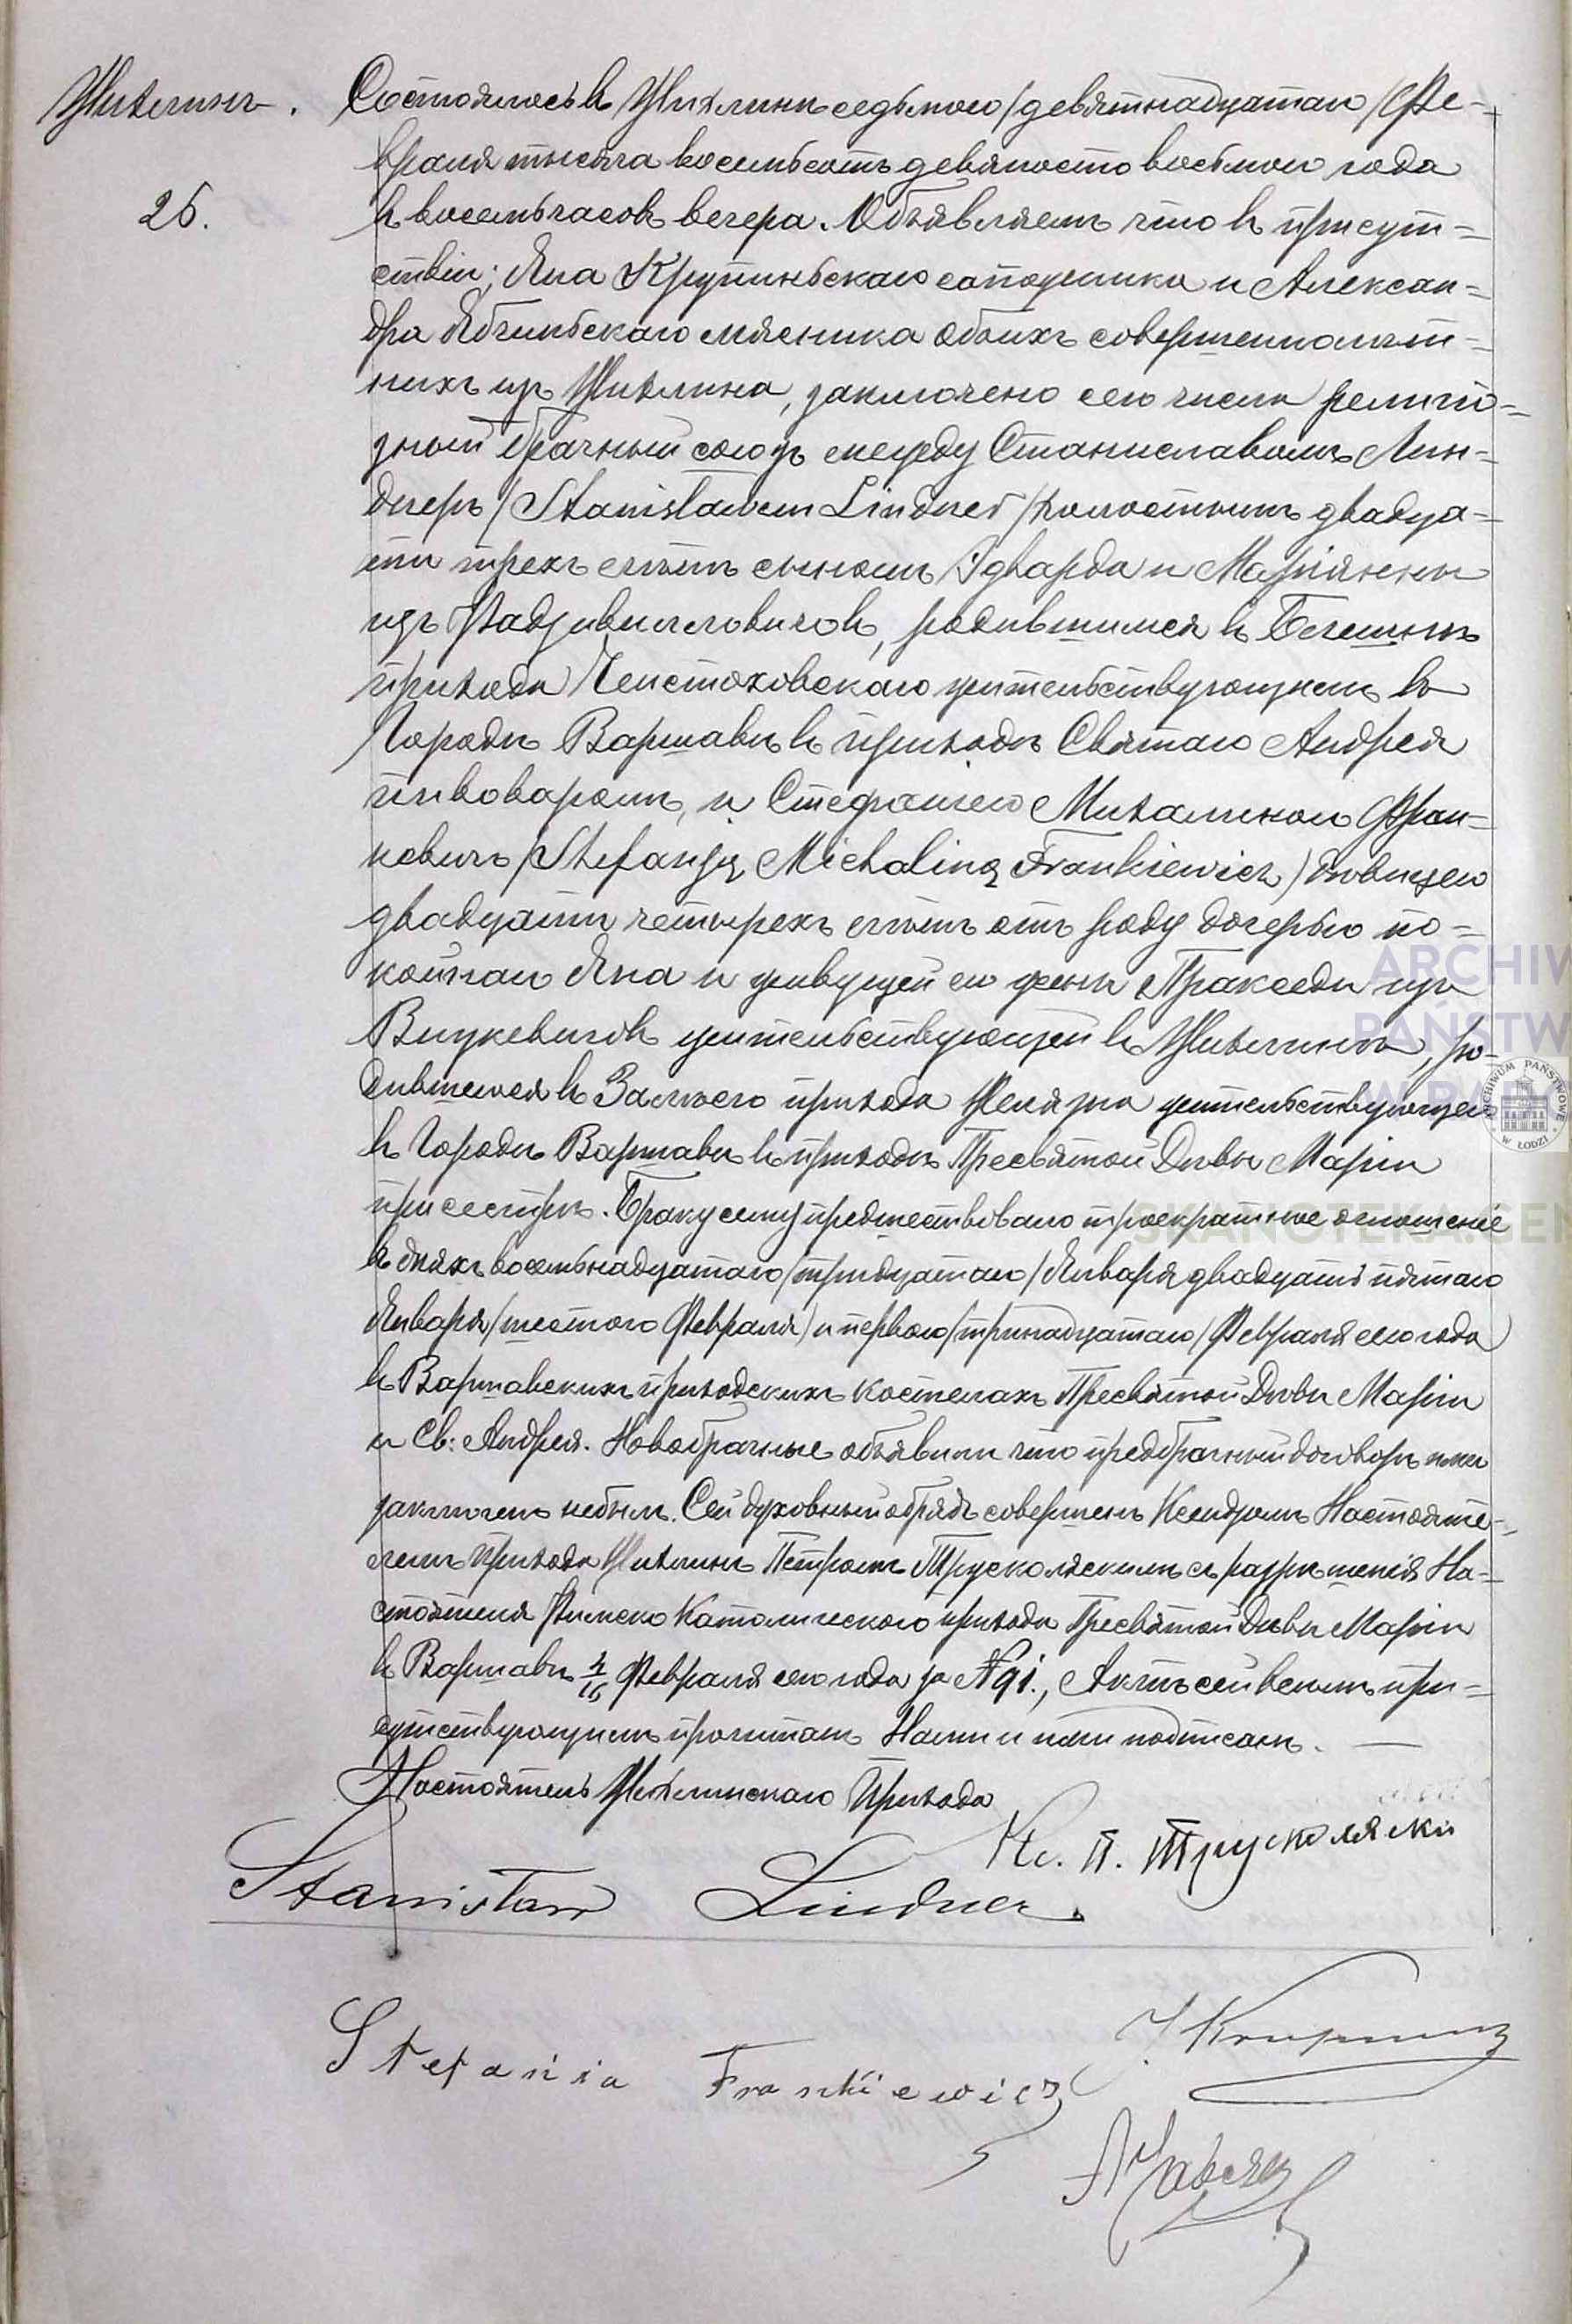 Жихлинъ.
26.
Состоялось въ Жихлинѣ седьмого /девятнадцатаго/ Фе-
враля тысяча восемьсотъ девяносто восьмого года
въ восемь часовъ вечера. Объявляемъ что въ присут-
ствіи; Яна Крупиньскаго сапожника и Алексан-
дра мясника обоихъ совершеннолѣт-
нихъ изъ Жихлина, заключено сего числа религіо-
зный брачный союзъ между Станиславомъ Лин-
днеръ /Stanisławem Lindner/ холостымъ двадца-
ти трехъ лѣтъ сыномъ Эдварда и Маріянны
изъ Радзивилловичовъ, родившимся въ
прихода Ченстоховскаго жительствующимъ въ
Городѣ Варшавѣ въ приходѣ Святаго Андрея
пивоваромъ, и Стефаніею Михалиною Фран-
кевичъ /Stefanją Michaliną Frankiewicz/ дѣвицею
двадцати четырехъ лѣтъ отъ роду дочерью по-
койнаго Яна и живущей его жены Праксѣды изъ
жительствующей въ Жихлинѣ, ро-
дившеюся въ прихода жительствующею
въ Городѣ Варшавѣ въ приходѣ Пресвятой Дѣвы Маріи
при сестрѣ. Браку сему предшествовало троекратное оглошеніе
въ дняхъ восемьнадцатаго /тридцатаго/ Января двадцать пятаго
Января /шестого Февраля/ и перваго /тринадцатаго/ Февраля сего года
въ Варшавскихъ приходскихъ костелахъ Пресвятой Дѣвы Маріи
и Св: Андрея. Новобрачные объявили что предбрачный договоръ ими
заключенъ небылъ. Сей духовный обрядъ совершенъ Ксендзомъ Настояте-
лемъ прихода Жихлинъ Петромъ Трусколяскимъ съ разрѣшенія На-
стоятеля Римско Католическаго прихода Пресвятой Дѣвы Маріи
въ Варшавѣ 4/16 Февраля сего года за N 91., Актъ сей всемъ при-
сутствующимъ прочитанъ Нами и ими подписанъ. —
Настоятель Жихлинскаго Прихода
Кс. П. Трусколяски
Stanisław Lindner.
Stefania Frankiewicz
ARCHIW
PAŃSTW
ARCHIWUM PAŃSTWOWE W ŁODZI
SKANOTEKA.GEN